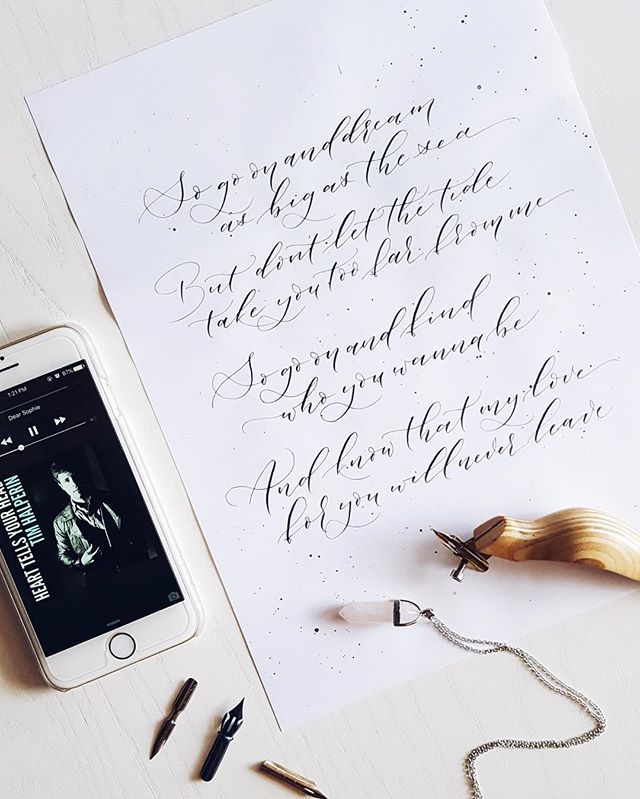 So go on and dream
as big as the sea
But don't let the tide
take you too far from me
So go on and find
who you wanna be
And know that my love
for you will never leave
1:21 PM
87%
Dear Sophie
HEART TELLS YOUR HEAD
TIM HALPERIN